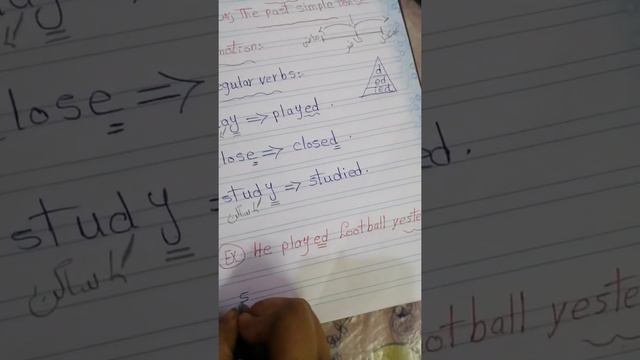 The past simple tense
mation:
egular verbs:
d
ed
ied
ay => played.
lose => closed.
study => studied.
ساكن
Ex He played football yeste
S